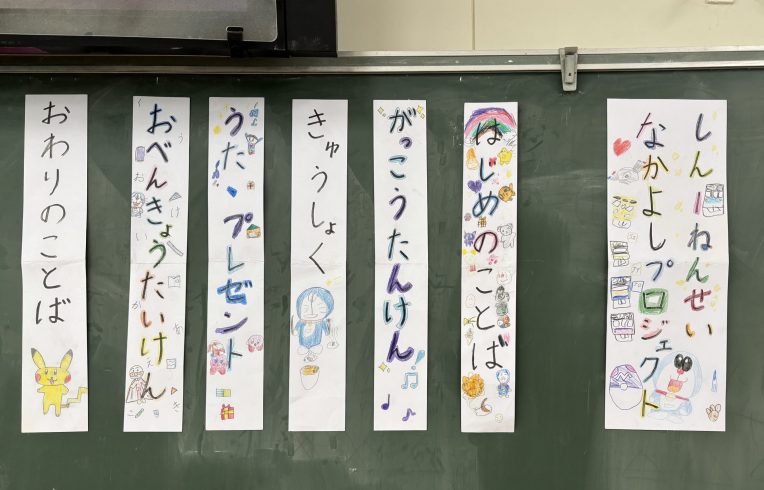 しん一ねんせい
なかよしプロジェクト
はじめのことば
がっこうたんけん
きゅうしょく
うた・プレゼント
おべんきょうたいけん
おわりのことば